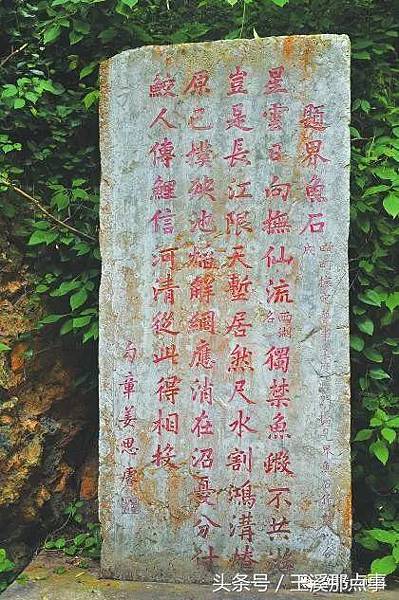 題界魚石
星雲日向撫仙流西湖名獨禁魚蝦不共游
豈是長江限天塹居然尺水割鴻溝楂
原已撲殃池焰解網應消在沼憂分付
鮫人傳鯉信河清從此得相投
句章姜思睿
头条号 / 玉溪那点事